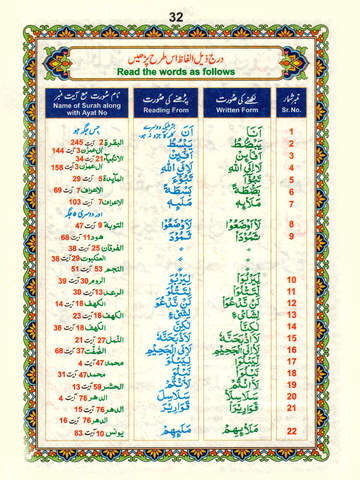 32
درج ذیل الفاظ اس طرح پڑھیں
Read the words as follows
نام سورت مع آیت نمبر پڑھنے کی صورت لکھنے کی صورت نمبر شمار
Name of Surah along with Ayat No Reading From Written Form Sr. No.
جس جگہ ہو اَنَ اَنَا 1
البقرة 2 آیت 245 يَبْسُطُ يَبْصُطُ 2
اٰل عمرٰن 3 آیت 144 اَفَئِنْ اَفَا۟ئِنْ 3
الانبیآء 21 آیت 34
اٰل عمرٰن 3 آیت 158 لَاِلَى اللّٰهِ لَا۟اِلَى اللّٰهِ 4
المآئدة 5 آیت 29 5
الاعراف 7 آیت 69 بَسْطَةً بَصْۜطَةً 6
الاعراف 7 آیت 103 مَلَئِهٖ مَلَا۟ئِهٖ 7
اور دوسری 5 جگہ
التوبة 9 آیت 47 لَاَوْضَعُوْا لَا۟اَوْضَعُوْا 8
هود 11 آیت 68 ثَمُوْدَ ثَمُوْدَا۟ 9
الفرقان 25 آیت 38 " "
العنكبوت 29 آیت 38 " "
النجم 53 آیت 51 " "
الروم 30 آیت 39 لِيَرْبُوَ لِيَرْبُوَا۟ 10
الرعد 13 آیت 30 لِتَتْلُوَ لِتَتْلُوَا۟ 11
الكهف 18 آیت 14 لَنْ نَّدْعُوَ لَنْ نَّدْعُوَا۟ 12
الكهف 18 آیت 23 لِشَيْءٍ لِشَا۟يْءٍ 13
الكهف 18 آیت 38 لٰكِنَّ لٰكِنَّا۟ 14
النمل 27 آیت 21 لَاَذْبَحَنَّهٗ لَا۟اَذْبَحَنَّهٗ 15
الصّٰفّٰت 37 آیت 68 لَاِلَى الْجَحِيْمِ لَا۟اِلَى الْجَحِيْمِ 16
محمد 47 آیت 4 لِيَبْلُوَ لِيَبْلُوَا۟ 17
محمد 47 آیت 31 نَبْلُوَ نَبْلُوَا۟ 18
الحشر 59 آیت 13 لَاَنْتُمْ لَا۟اَنْتُمْ 19
الدهر 76 آیت 4 سَلٰسِلَ سَلٰسِلَا۟ 20
الدهر 76 آیت 15 قَوَارِيْرَ قَوَارِيْرَا۟ 21
الدهر 76 آیت 16
يونس 10 آیت 83 مَلَئِهِمْ مَلَا۟ئِهِمْ 22